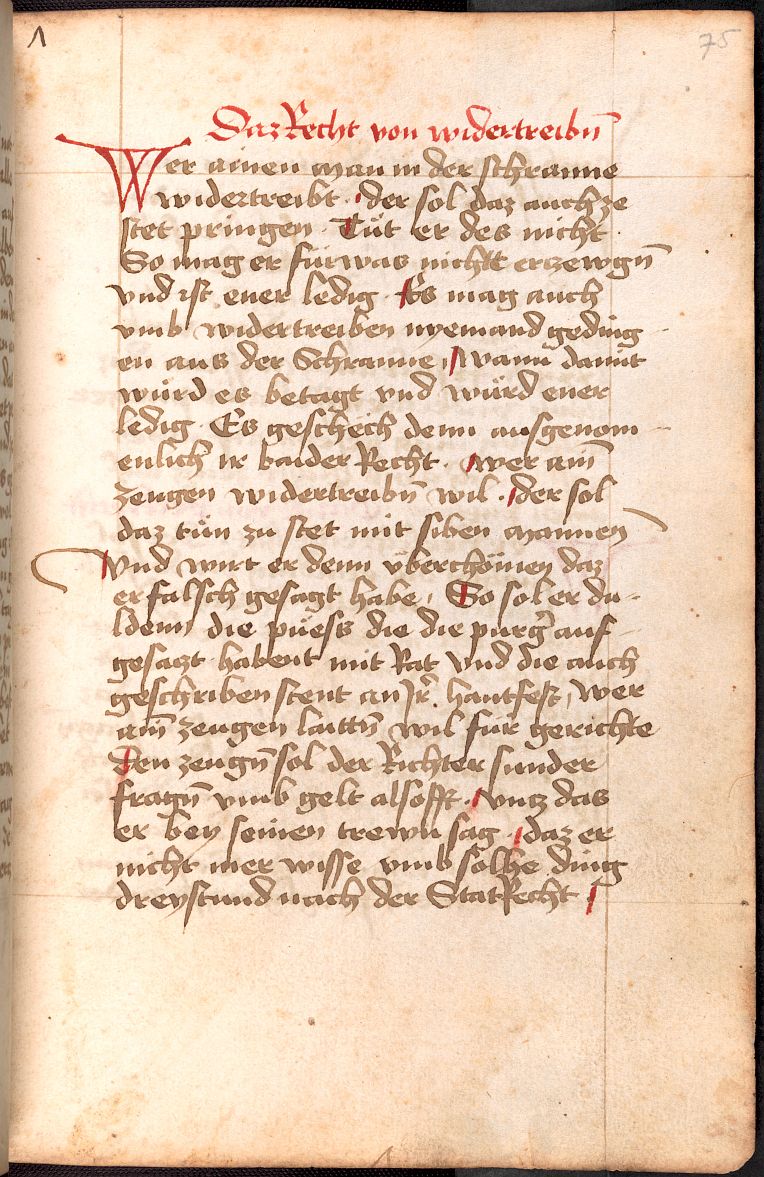 Λ
75
Daz Recht von widertreibn̄
Wer ainen man in der schranne
widertreibt . der sol daz auch ze
stet pringen . Tüt er des nicht
So mag er für was nichtt erzewgn̄
vnd ist ener ledig . Es mag auch
vmb widertreiben nyemand geding
en aus der Schranne , wann damit
würd es betagt vnd würd ener
ledig . Es geschech denn ausgenom
enlich ir baider Recht . wer ain̄
zeugen widertreibn̄ wil . der sol
daz tün zu stet mit siben mannen
Vnd wirt er denn vberchömen daz
er falsch gesagt habe , So sol er du-
lden die puess die die purg̉ auf
gesatzt habent mit Rat vnd die auch
geschriben stent an Jr̉ . hantfest , Wer
ain̄ zeugen lauttn̄ wil für gerichte
Den zeugn̄ sol der Richter sunder
fragn̄ vmb gelt alsofft . vntz das
er bey seinen trewn sag . daz er
nicht mer wisse vmb solhe ding
dreystund nach der Stat Recht .